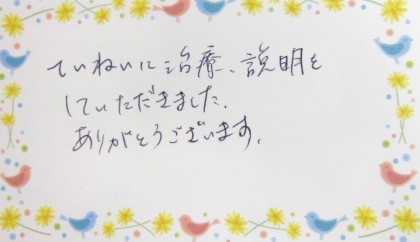 ていねいに治療、説明を
していただきました.
ありがとうございます.